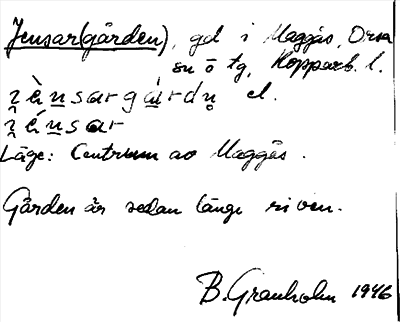 Jensar(gården), gd i Maggås, Orsa
sn o tg, Kopparb. l.
el.
Läge: Centrum av Maggås.
Gården är sedan länge riven.
B. Granholm 1946